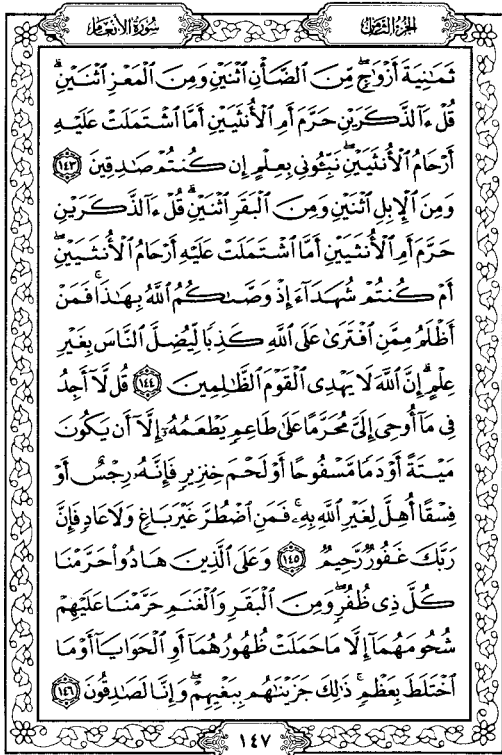 سورة الأنعام
الجزء الثامن
ثَمَٰنِيَةَ أَزْوَٰجٖۖ مِّنَ ٱلضَّأۡنِ ٱثۡنَيۡنِ وَمِنَ ٱلۡمَعۡزِ ٱثۡنَيۡنِۗ
قُلۡ ءَآلذَّكَرَيۡنِ حَرَّمَ أَمِ ٱلۡأُنثَيَيۡنِ أَمَّا ٱشۡتَمَلَتۡ عَلَيۡهِ
أَرۡحَامُ ٱلۡأُنثَيَيۡنِۖ نَبِّـُٔونِي بِعِلۡمٍ إِن كُنتُمۡ صَٰدِقِينَ ١٤٣
وَمِنَ ٱلۡإِبِلِ ٱثۡنَيۡنِ وَمِنَ ٱلۡبَقَرِ ٱثۡنَيۡنِۗ قُلۡ ءَآلذَّكَرَيۡنِ
حَرَّمَ أَمِ ٱلۡأُنثَيَيۡنِ أَمَّا ٱشۡتَمَلَتۡ عَلَيۡهِ أَرۡحَامُ ٱلۡأُنثَيَيۡنِۖ
أَمۡ كُنتُمۡ شُهَدَآءَ إِذۡ وَصَّىٰكُمُ ٱللَّهُ بِهَٰذَاۚ فَمَنۡ
أَظۡلَمُ مِمَّنِ ٱفۡتَرَىٰ عَلَى ٱللَّهِ كَذِبٗا لِّيُضِلَّ ٱلنَّاسَ بِغَيۡرِ
عِلۡمٍۚ إِنَّ ٱللَّهَ لَا يَهۡدِي ٱلۡقَوۡمَ ٱلظَّٰلِمِينَ ١٤٤ قُل لَّآ أَجِدُ
فِي مَآ أُوحِيَ إِلَيَّ مُحَرَّمًا عَلَىٰ طَاعِمٖ يَطۡعَمُهُۥٓ إِلَّآ أَن يَكُونَ
مَيۡتَةً أَوۡ دَمٗا مَّسۡفُوحًا أَوۡ لَحۡمَ خِنزِيرٖ فَإِنَّهُۥ رِجۡسٌ أَوۡ
فِسۡقًا أُهِلَّ لِغَيۡرِ ٱللَّهِ بِهِۦۚ فَمَنِ ٱضۡطُرَّ غَيۡرَ بَاغٖ وَلَا عَادٖ فَإِنَّ
رَبَّكَ غَفُورٞ رَّحِيمٞ ١٤٥ وَعَلَى ٱلَّذِينَ هَادُواْ حَرَّمۡنَا
كُلَّ ذِي ظُفُرٖۖ وَمِنَ ٱلۡبَقَرِ وَٱلۡغَنَمِ حَرَّمۡنَا عَلَيۡهِمۡ
شُحُومَهُمَآ إِلَّا مَا حَمَلَتۡ ظُهُورُهُمَآ أَوِ ٱلۡحَوَايَآ أَوۡ مَا
ٱخۡتَلَطَ بِعَظۡمٖۚ ذَٰلِكَ جَزَيۡنَٰهُم بِبَغۡيِهِمۡۖ وَإِنَّا لَصَٰدِقُونَ ١٤٦
١٤٧